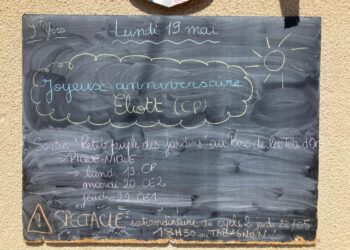 Lundi 19 mai
Joyeux anniversaire
Eliott (CP)
Sortie "Petit peuple des jardins" au Parc de la
→ PIQUE-NIQUE
→ lundi 19: CP
mardi 20: CE2
jeudi CE1
SPECTACLE extraordinaire du cycle 2 jeudi 22/05
18H30 au